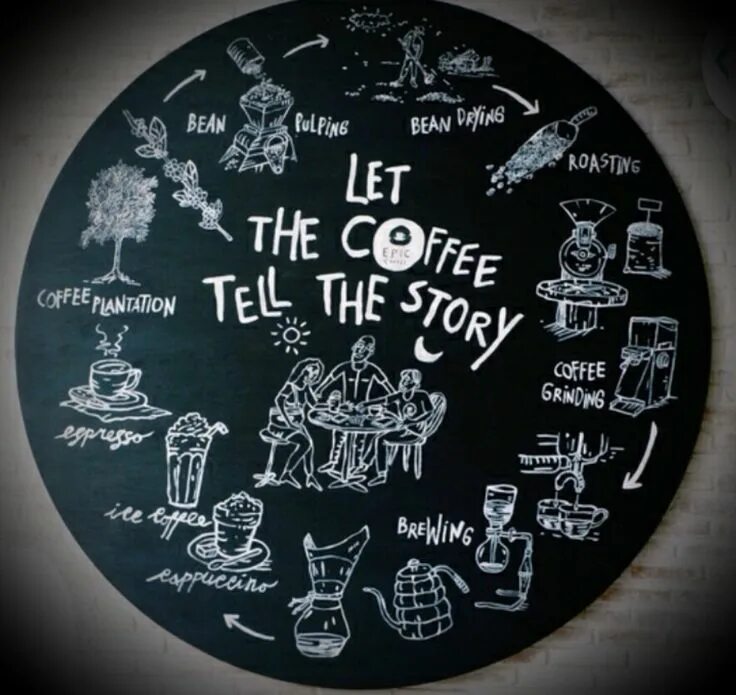 LET
THE COFFEE
EPIC
COFFEE
TELL THE STORY
COFFEE PLANTATION
BEAN PULPING
BEAN DRYING
ROASTING
COFFEE
GRINDING
BREWING
cappuccino
ice coffee
espresso